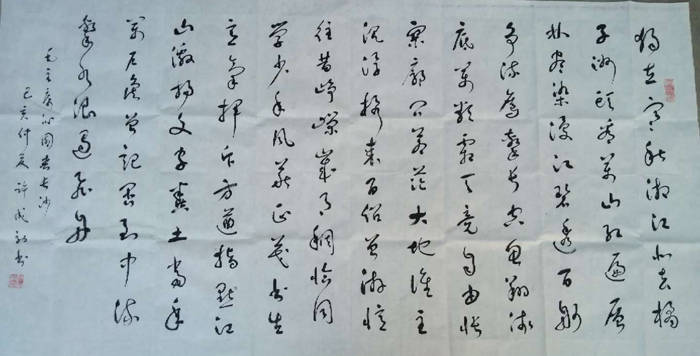 独立寒秋湘江北去橘
子洲头看萬山红遍层
林尽染漫江碧透百舸
争流鹰擊长空鱼翔浅
底萬類霜天竞自由怅
寥廓问苍茫大地谁主
沉浮携来百侣曾游忆
往昔峥嵘歲月稠恰同
学少年风华正茂书生
意氣挥斥方遒指點江
山激扬文字粪土当年
萬户侯曾记否到中流
擊水浪遏飞舟
毛主席沁园春长沙
己亥仲夏许成书